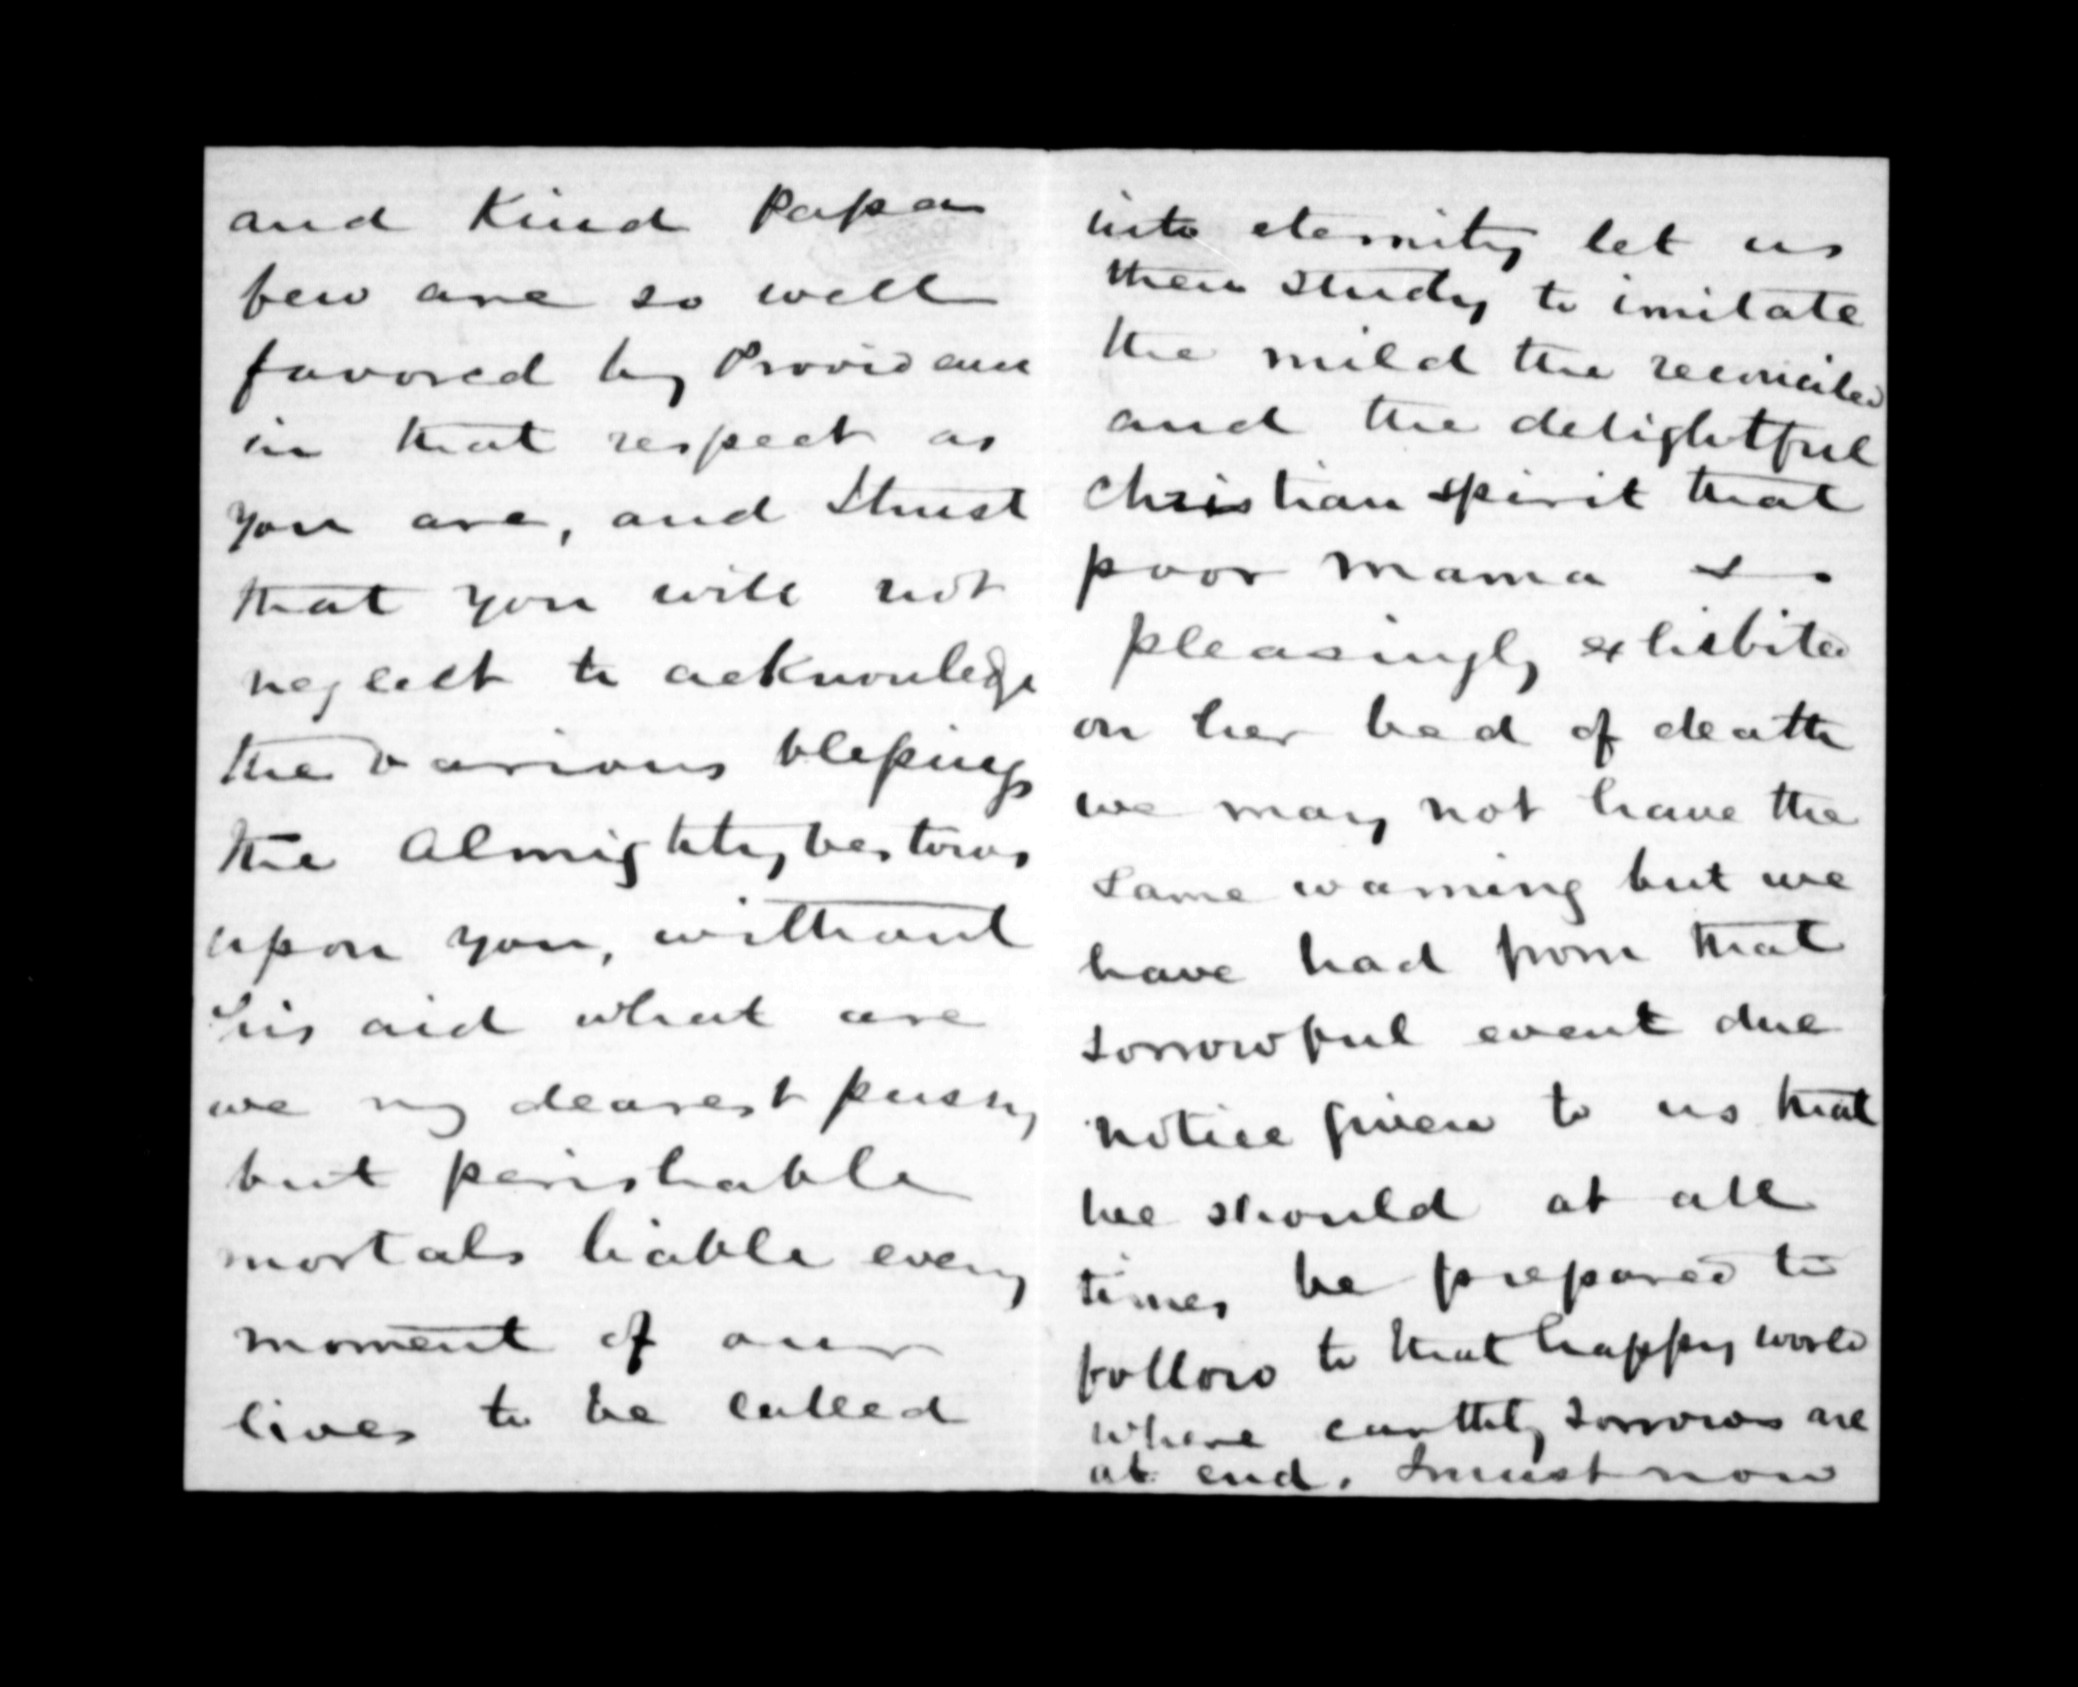 and Kind Papa
few are so well
favored by Providence
in that respect as
you are, and I trust
that you will not
neglect to acknowledge
the various blessings
the Almighty bestows
upon you, without
his aid what are
we my dearest pussy
but perishable
mortals liable every
moment of our
lives to be called
into eternity let us
then study to imitate
the mild the reconciled
and the delightful
Christian spirit that
poor Mama so
pleasingly exhibited
on her bed of death
we may not have the
same warning but we
have had from that
sorrowful event due
notice given to us that
we should at all
times be prepared to
follow to that happy world
where earthly sorrows are
at end. I must now